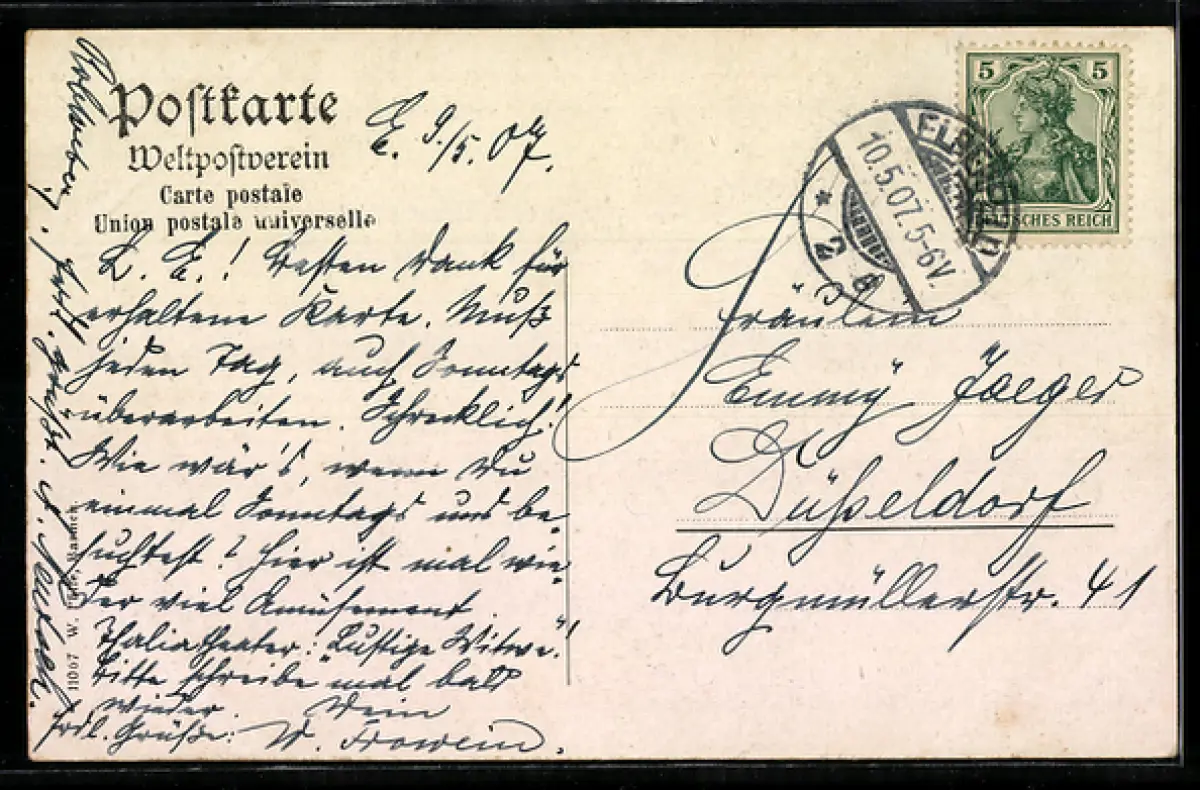 Postkarte
Weltpostverein
Carte postale
Union postale universelle
E. 9/5.07.
L. E.! Besten Dank für
erhaltene Karte. Muß
jeden Tag, auch Sonntags
überarbeiten. Schrecklich!
Wie wär's, wenn Du
einmal Sonntags uns be-
suchtest? Hier ist mal wie-
der viel Amüsement.
Thaliatheater: „Lustige Witwe"!
Bitte schreibe mal bald
wieder. Dein
Frdl. Grüße: W. Frowein.
11067 W. Barmen.
5 5
DEUTSCHES REICH
ELBERFELD
10.5.07.5-6V.
* 2 g
Fräulein
Emmy Jaeger
Düsseldorf
Burgmüllerstr. 41